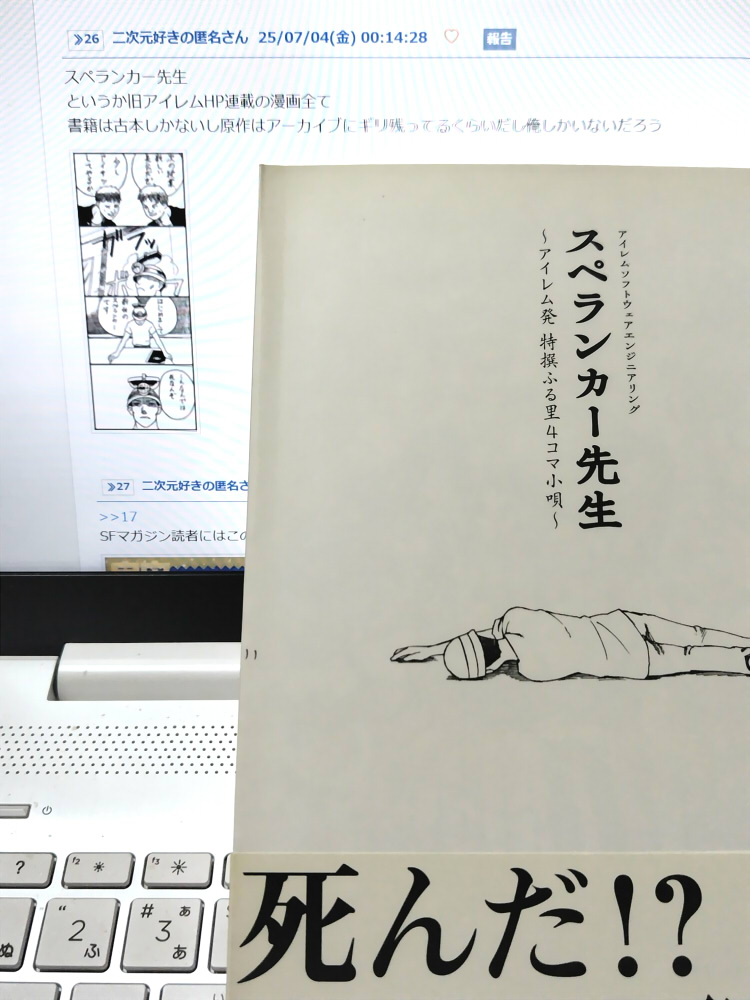 ≫26 二次元好きの匿名さん 25/07/04(金) 00:14:28 ♡ 報告
スペランカー先生
というか旧アイレムHP連載の漫画全て
書籍は古本しかないし原作はアーカイブにギリ残ってるくらいだし俺しかいないだろう
≫27 二次元好きの匿名さ
>>17
SFマガジン読者にはこの
アイレムソフトウェアエンジニアリング
スペランカー先生
～アイレム発 特撰ふる里4コマ小唄～
死んだ!?
? f2 f3
ぬ " 2 ふ # 3 ぁ あ